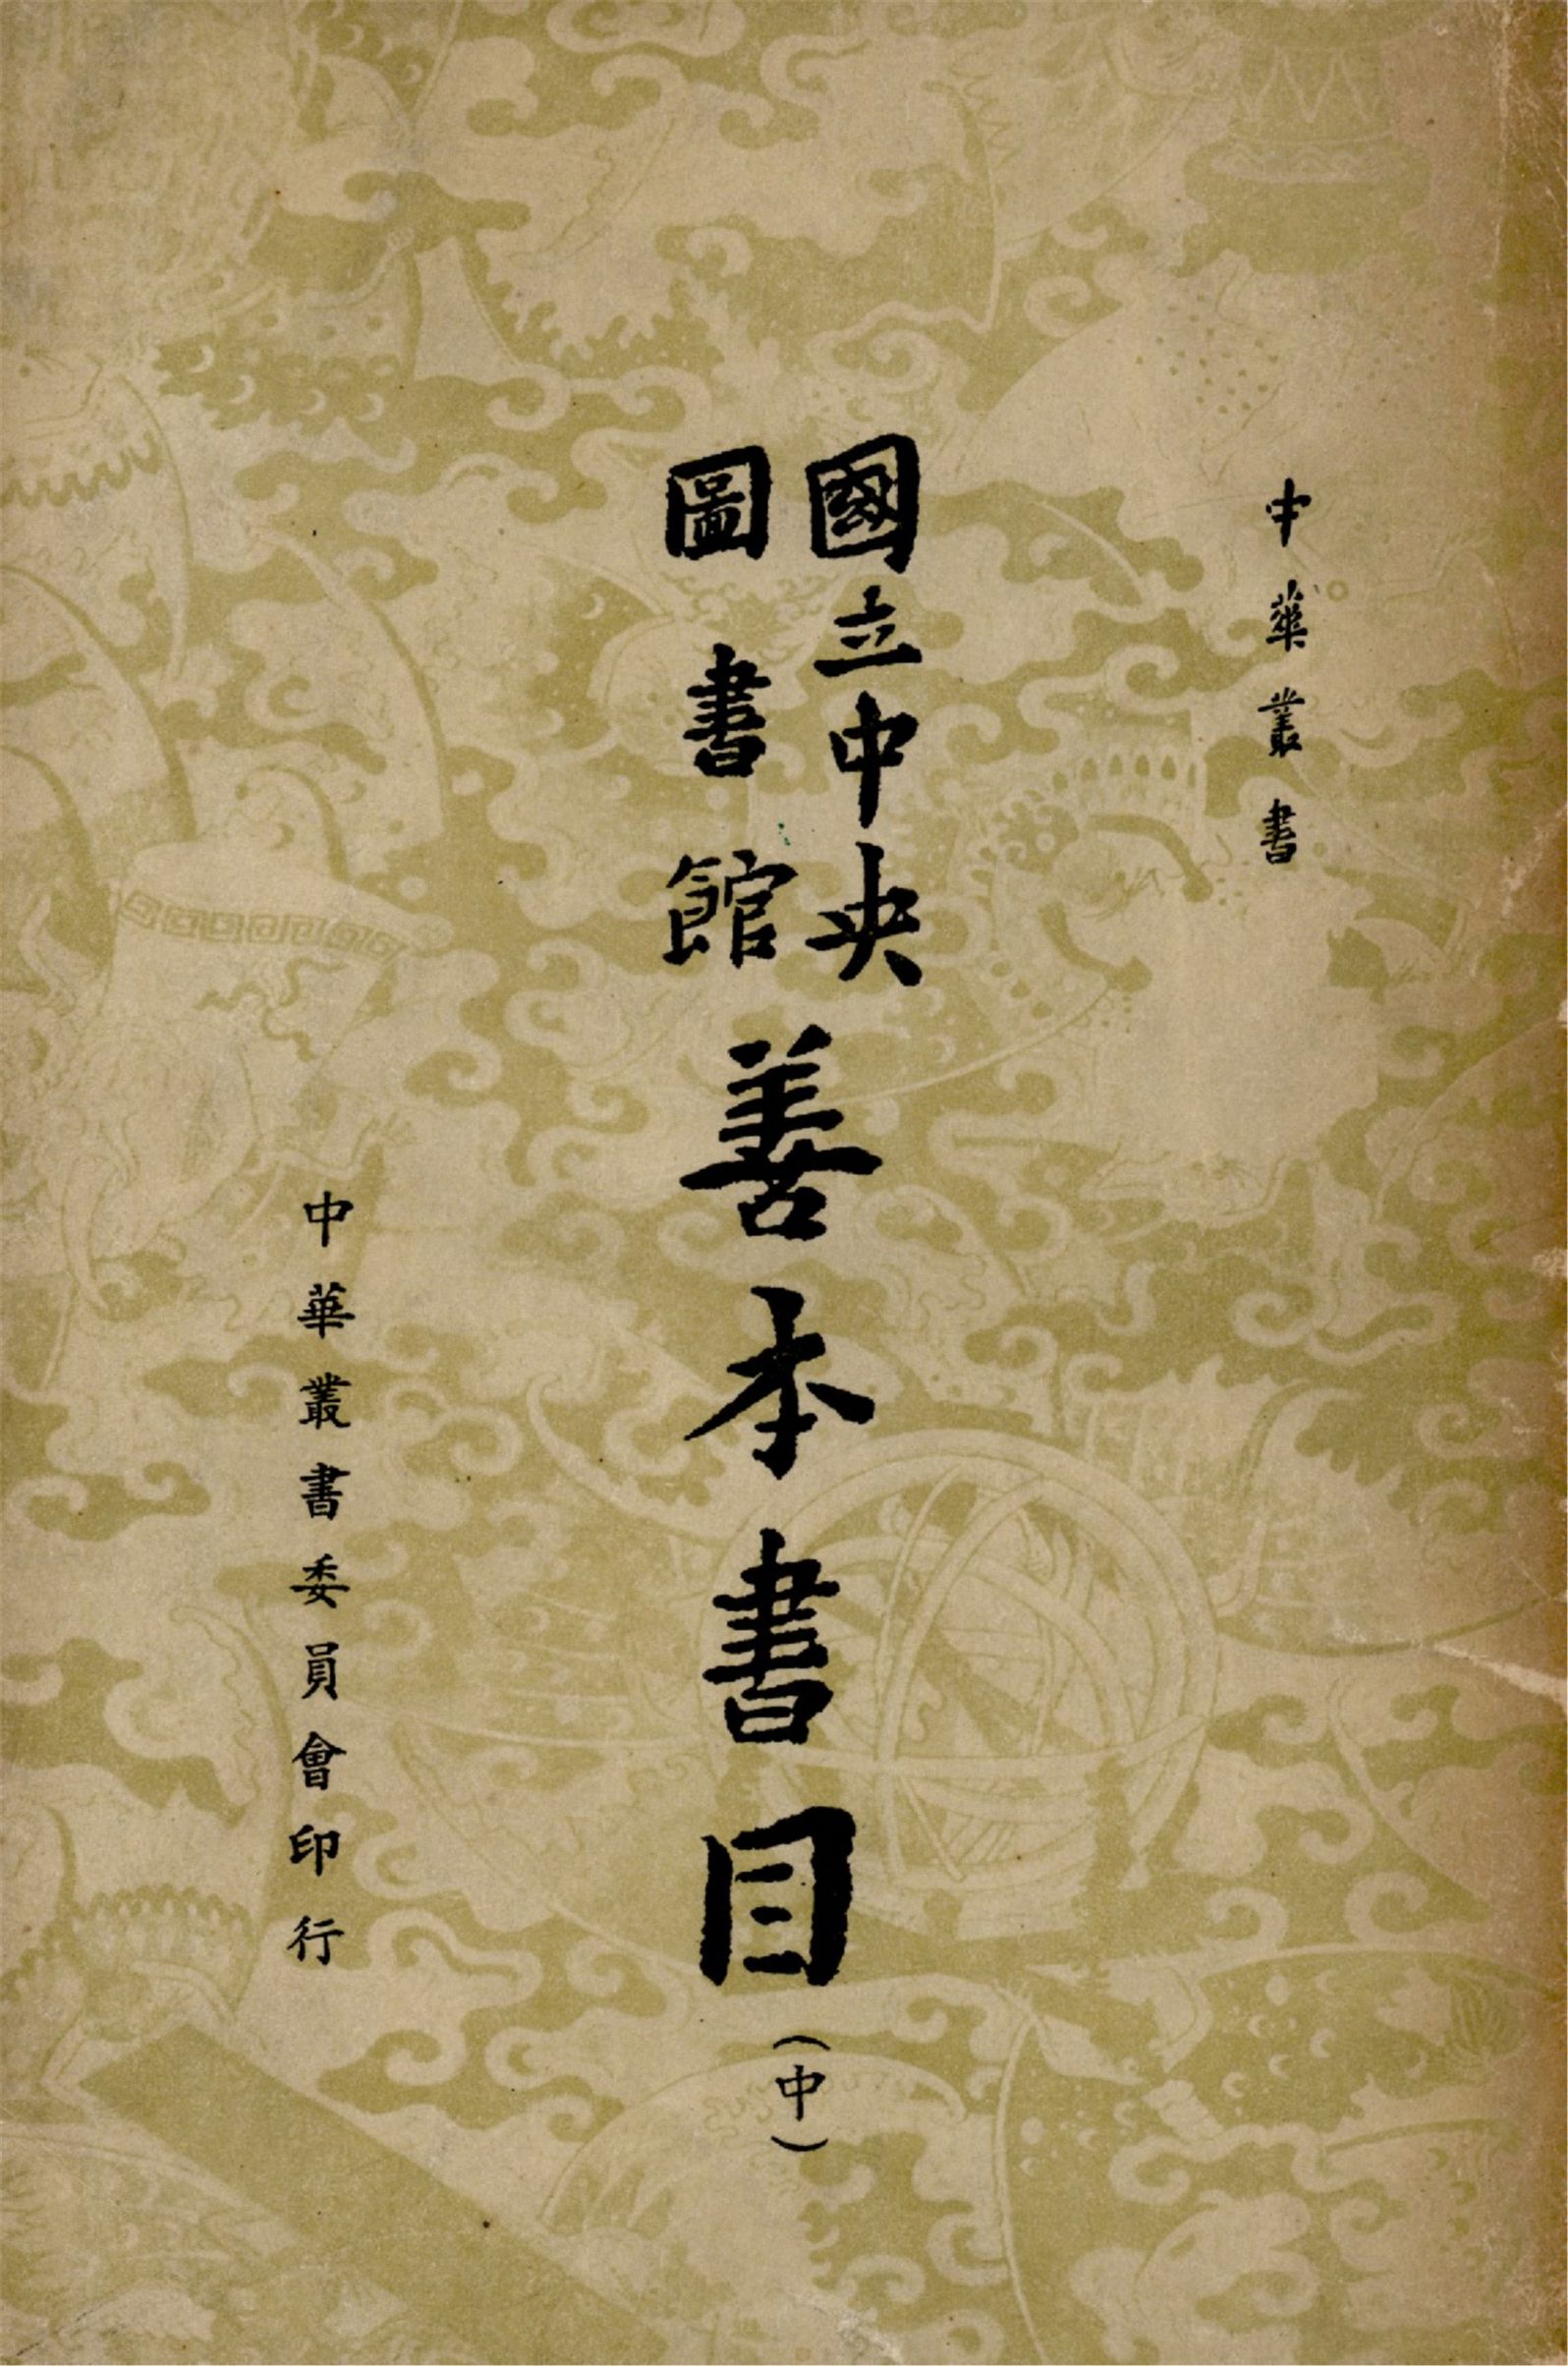 中華叢書
國立中央
圖書館
善本書目
(中)
中華叢書委員會印行